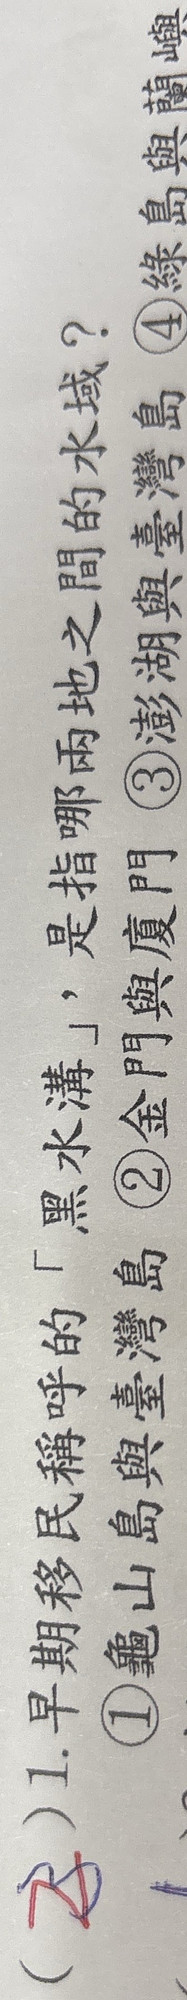 ( 3 )1.早期移民稱呼的「黑水溝」，是指哪兩地之間的水域？
①龜山島與臺灣島 ②金門與廈門 ③澎湖與臺灣島 ④綠島與蘭嶼